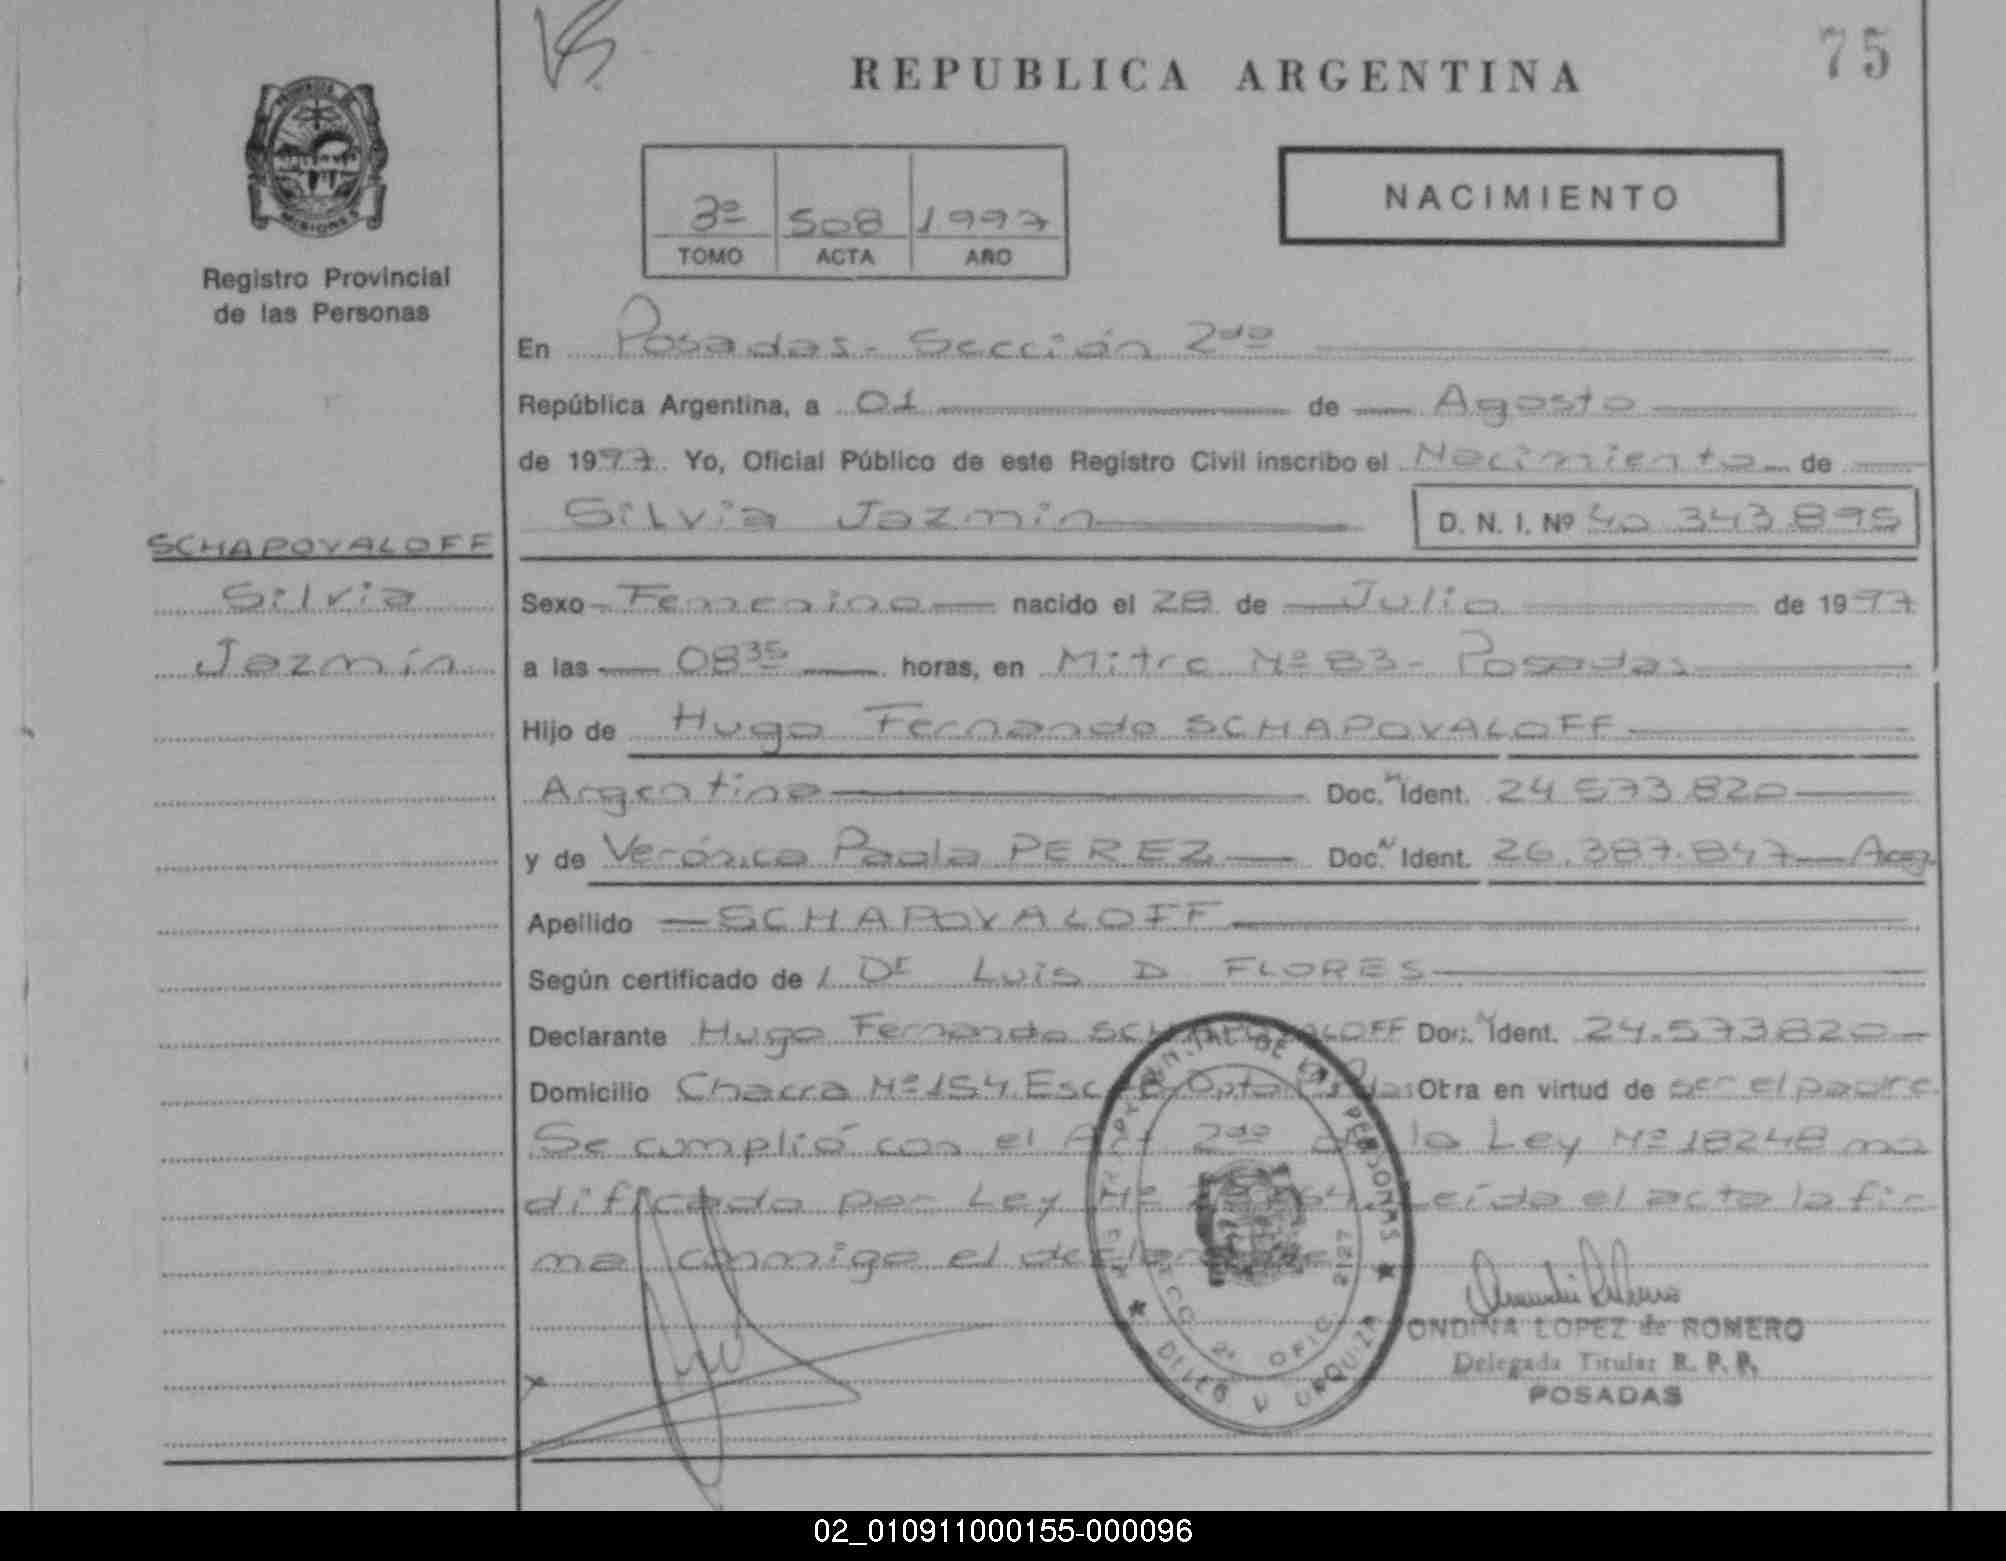 75
REPUBLICA ARGENTINA
PROVINCIA DE
MISIONES
Registro Provincial
de las Personas
3º 508 1997
TOMO ACTA AÑO
NACIMIENTO
En Posadas - Sección 2da
República Argentina, a 01 de Agosto
de 1997. Yo, Oficial Público de este Registro Civil inscribo el Nacimiento de
Silvia Jazmín D. N. I. Nº 40 343 895
SCHAPOVALOFF
Silvia
Jazmín
Sexo Femenino nacido el 28 de Julio de 1997
a las 08 35 horas, en Mitre Nº 83 - Posadas
Hijo de Hugo Fernando SCHAPOVALOFF
Argentino Doc. N Ident. 24 573 820
y de Verónica Paola PEREZ Doc. N Ident. 26.387.847 Arg
Apellido SCHAPOVALOFF
Según certificado de Dr Luis D FLORES
Declarante Hugo Fernando SCHAPOVALOFF Doc. N Ident. 24.573820
Domicilio Chacra Nº 154 Esc Dpto Otra en virtud de ser el padre
Se cumplió con el Art 2do de la Ley Nº 18248 mo
dificado por Ley Nº Leída el acta la fir
ma conmigo el declarante
ONDINA LOPEZ de ROMERO
Delegada Titular R. P. P.
POSADAS
DE LAS PERSONAS
SECC 2a OFIC. 2127
URQUIZA
02_010911000155-000096